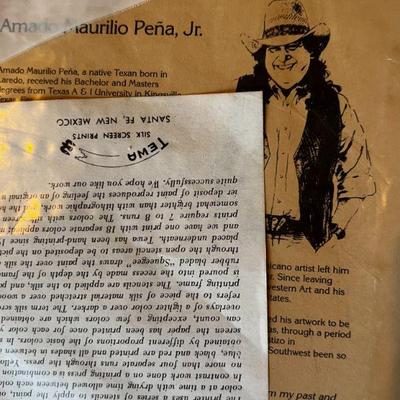 Amado Maurilio Peña, Jr.
Amado Maurilio Peña, a native Texan born in
Laredo, received his Bachelor and Masters
degrees from Texas A & I University in Kingsville
Texas.
icano artist left him
Since leaving
western Art and his
states.
ed his artwork to be
as, through a period
stizo in
Southwest been so
m my past and
The printer uses a series of stencils to apply the
color at a time with drying time allowed between each color
In contrast work done on a printing press is a combination
no more than four separate runs through the press. Yellow
blue, black and red are printed and all shades in between
obtained by different proportions of the basic colors. In
screen the paper has been printed once for each color
can count, excepting a few colors which are obtained
overlays of a lighter color on a darker. The term silk
refers to the piece of silk material stretched over a
printing frame. The stencils are applied to the silk, and
is poured into the recess made by the depth of the frame
rubber bladed "Squeegee" draws the paint over the silk
through the open stencil areas to be deposited on the
placed underneath. Tewa has been hand-printing since
and we have one print with 18 separate colors
prints require 7 to 8 runs. The colors with silk
somewhat brighter than with lithography.
ier deposit of paint reproduces the feeling of an original
quite successfully. We hope you like our work.
TEWA
SILK SCREEN PRINTS
SANTA FE, NEW MEXICO